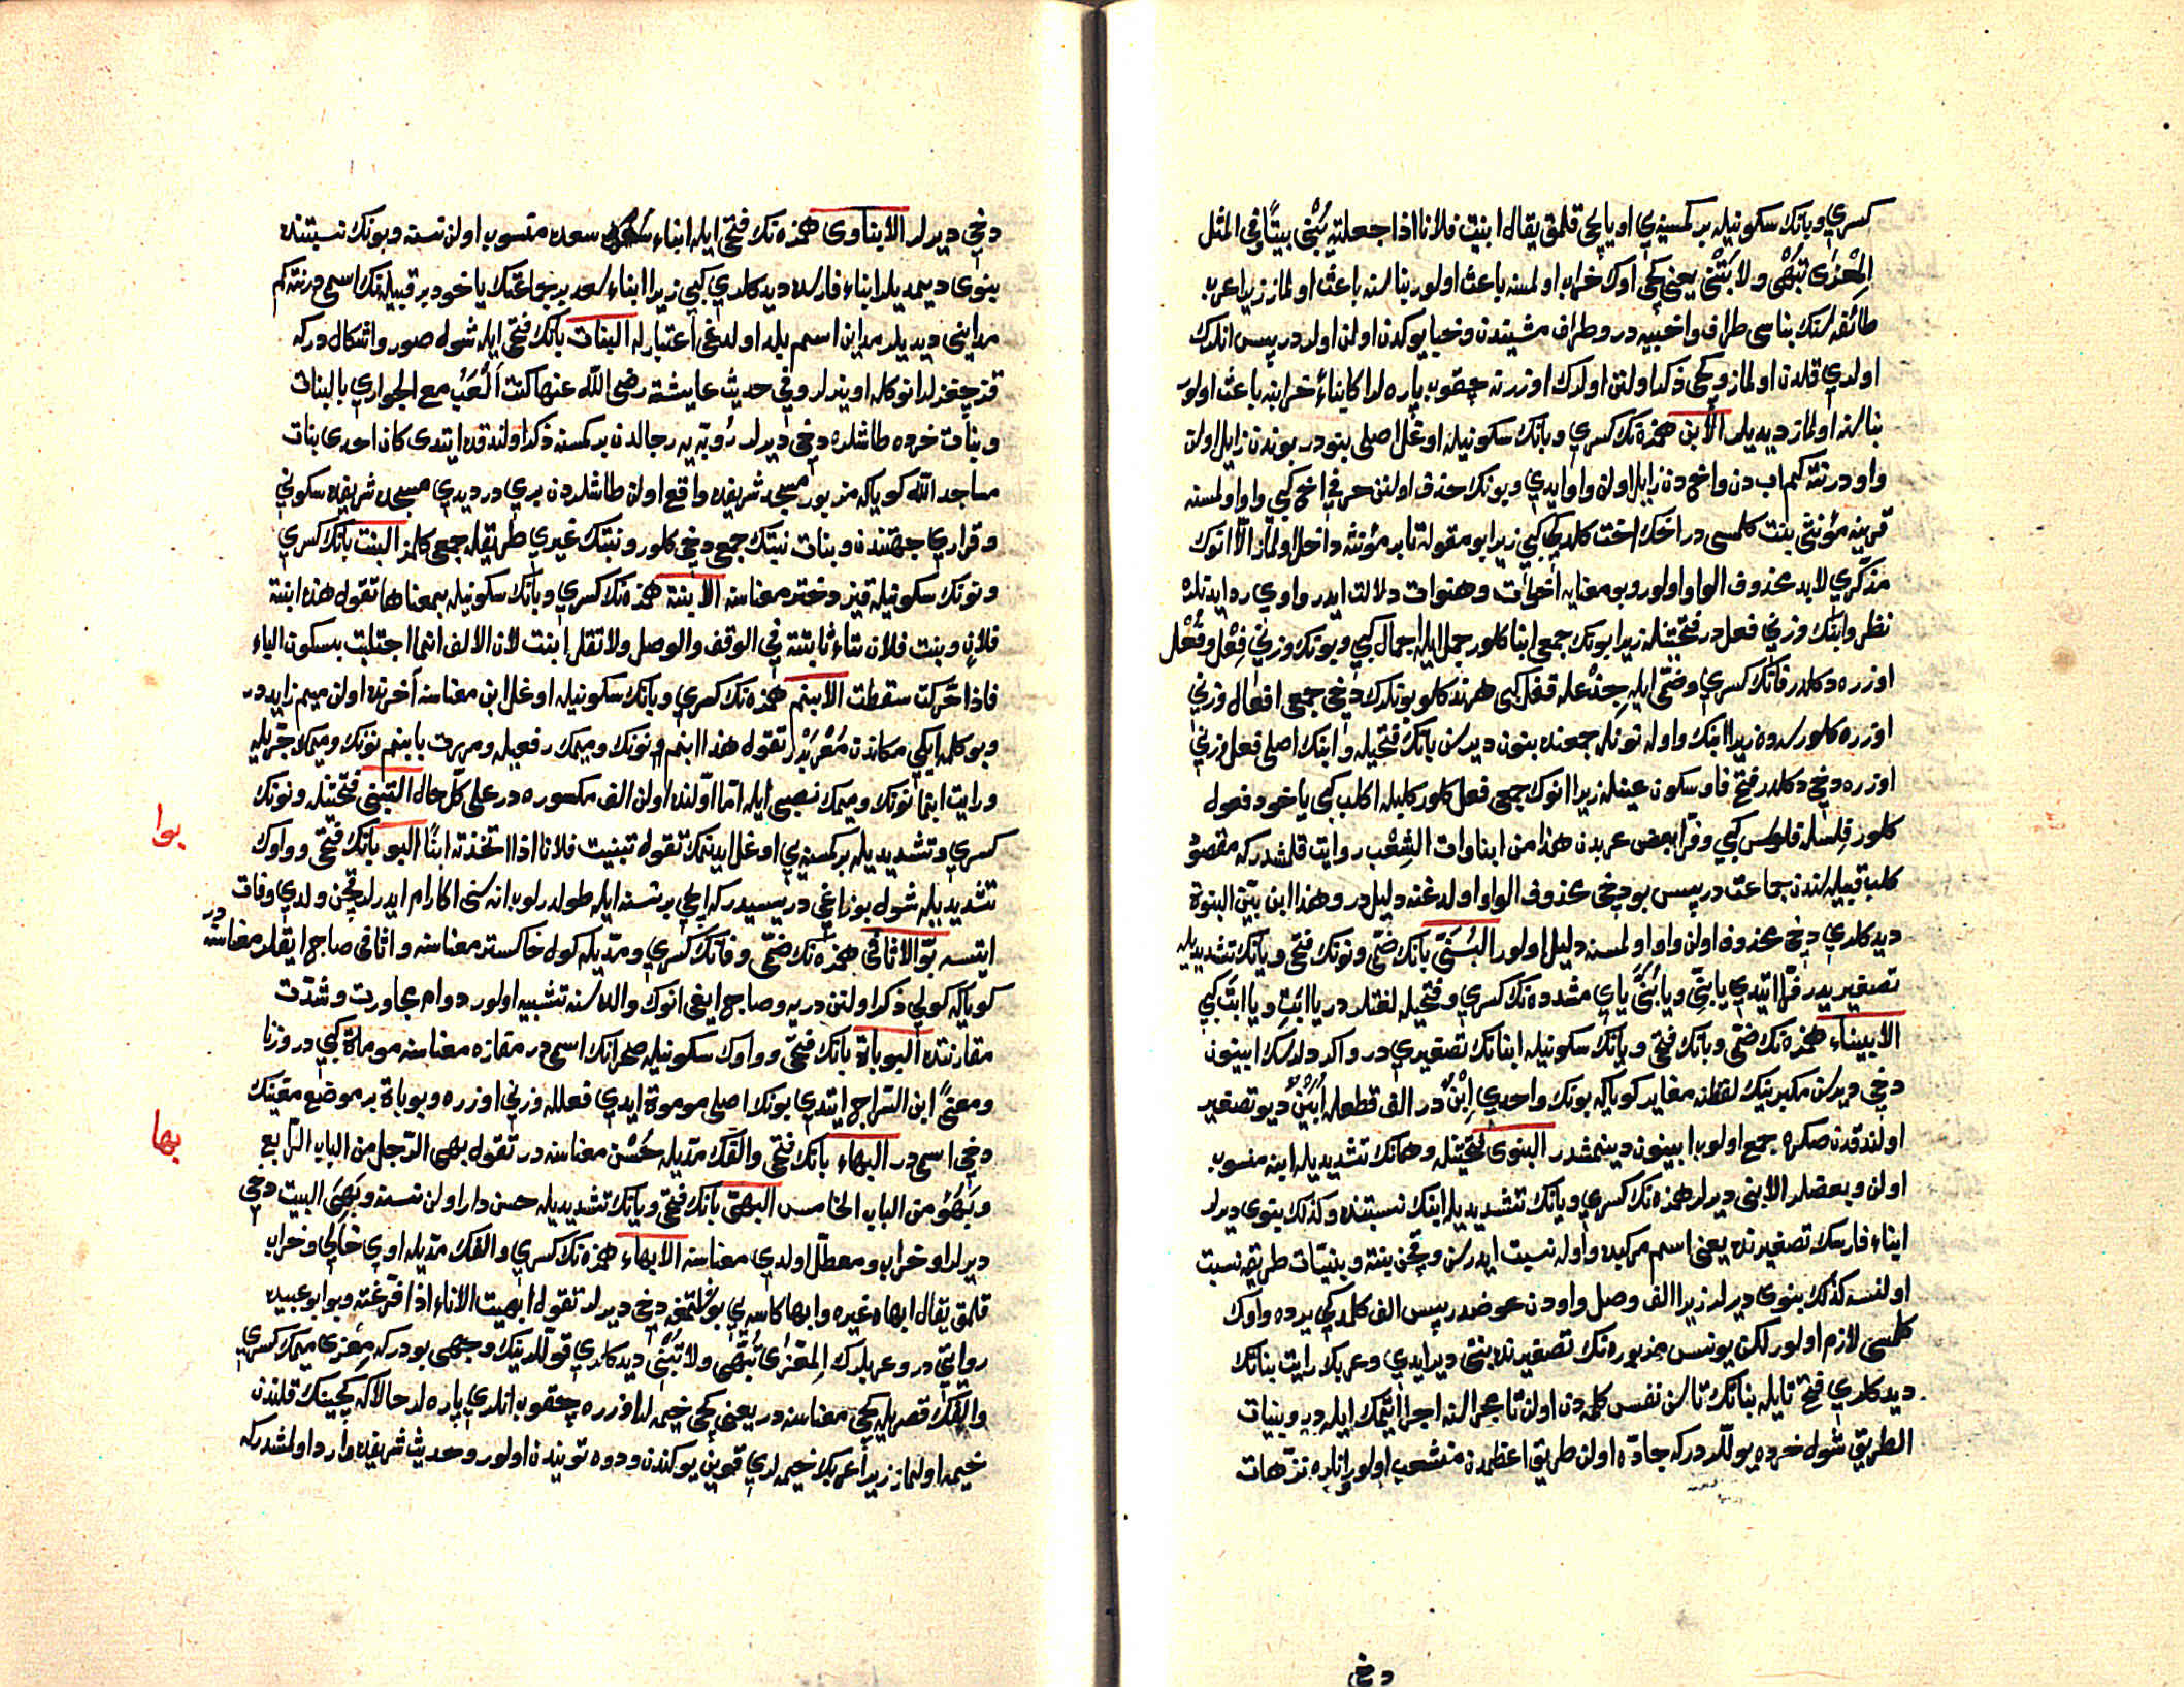 كسري وبانك سكونيله بر كمسنه‌يي او ياپجي قلمق يقال ابنيت فلانا اذا جعلته يُبْنى بيتًا وفي المثل
المِعْزَى تُبْهِى ولا تُبْنِى يعني كچي اوك خراب اولمسنه باعث اولور بناسنه باعث اولماز زيرا عرب
طائفه‌سنك بناسي طراف واخبيه در وطراف مشيندن وخبا يوكدن اولن اولردر پس انلرك
اولدي قلدن اولماز وكچي ذكر اولنن اولرك اوزرنه چقوب پاره لر اكا بناءً خرابنه باعث اولور
بناسنه اولماز ديديلر الابن همزه‌نك كسري وبانك سكونيله اوغل اصلي بنو در بوندن زايل اولن
واو در نته كم اب دن واخ دن زايل اولن واو ايدي وبونك حذف اولنن حرفي اخ كبي واو اولمسنه
قرينه مؤنثي بنت كلمسي در اخك اخت كلديكي كبي زيرا بو مقوله تا بر مؤنثه داخل اولماز الّا انوك
مذكّري لابد محذوف الواو اولور وبو معنايه اخوات وهنوات دلالت ايدر واوي رد ايدنلره
نظر وابنك وزني فعل در فتحتينله زيرا بونك جمعي ابنا كلور جمل ايله اجمال كبي وبونك وزني فِعْل وفُعْل
اوزره دكلدر فانك كسري وضمّي ايله جِذْع له قفل كبي هرنه كلو بونلرك دخي جمعي افعال وزني
اوزره كلور سه ده زيرا ابنك واوله نونله جمعنده بنون ديرسن بانك فتحيله وابنك اصلي فعل وزني
اوزره دخي دكلدر فتح فا وسكون عينله زيرا انوك جمعي افعل كلور كلبله اكلب كبي ياخود فعول
كلور فلسله فلوس كبي وفرّا بعض عربدن هذا من ابناوات الشِعْب روايت قلمشدر كه مقصود
كلب قبيله سندن جماعت در پس بو دخي محذوف الواو اولدغنه دليل در وهذا ابن بيّن البنوة
ديدكلري دخي محذوف اولن واو اولمسنه دليل اولور البُنَيّ بانك ضمّي ونونك فتحي ويانك تشديديله
تصغيريدر فرّا ايتدي يا بنيِّ ويا بُنَيَّ ياي مشدده‌نك كسري وفتحيله لغتلر در يا ابتِ ويا ابتَ كبي
الابيناء همزه‌نك ضمّي وبانك فتحي ويانك سكونيله ابنانك تصغيري در واكر دلرسك ابينون
دخي ديرسن مكبرينك لفظنه مغاير كويا كه بونك واحدي اِبْن در الف قطعله اُبَيْن ديو تصغير
اولندقدن صكره جمع اولوب ابينون دينمشدر البنوي فتحتينله وهمانك تشديديله ابنه منسوب
اولن وبعضلر الابني ديرلر همزه‌نك كسري ويانك تشديديله ابنك نسبتنده وكذلك بنوي ديرلر
ابناء فارسك تصغيرنده يعني اسم مركبده واوله نسبت ايدرسن وقچن بنته وبنيّات طريقه نسبت
اولنسه كذلك بنوى ديرلر زيرا الف وصل واودن عوضدر پس الف كلديكي يرده واوك
كلمسي لازم اولور لكن يونس مزبوره‌نك تصغيرنده بنتي دير ايدي وعربلا رايت بناتك
ديدكلري فتح تايله بناتك تاسن نفس كلمه دن اولن تا مجراسنه اجرا ايتمك ايله در وبنيات
الطريق شوله خرده يوللر در كه جادّه اولن طريق اعظمدن منشعب اولور انلره ترّهات
دخي
دخي ديرلر الابناوى همزه‌نك فتحي ايله ابناء سعده منسوب اولن نسنه وبونك نسبتنده
بنوى ديمديلر ابناء فارسده ديدكلري كبي زيرا ابناء سعد بر جماعتك ياخود بر قبيله‌نك اسمي در نته كم
مدايني ديديلر مداين اسم بلد اولدغي اعتبارله البنات بانك فتحي ايله شوله صور واشكال در كه
قزجقزلر انوكله اوينرلر وفي حديث عايشة رضى الله عنها كنت ألْعَبُ مع الجواري بالبنات
وبنات خرده طاشلره دخي ديرلر رؤبه‌يه رجالدن بر كمسنه ذكر اولندقده ايتدى كان احدى بنات
مساجد الله كويا كه مزبور مسجد شريفده واقع اولن طاشلردن بري در ديدي مسجد شريفده سكوني
وقراري جهتندن وبنات بنتك جمعي دخي كلور وبنتك غيري طريقله جمعي كلمز البنت بانك كسري
ونونك سكونيله قيز دختر معناسنه الابنة همزه‌نك كسري وبانك سكونيله بمعناها تقول هذه ابنة
فلان وبنت فلان بتاء ثابتة في الوقف والوصل ولا تقل ابنت لان الالف انما اجتلبت بسكون الباء
فاذا تحركت سقطت الابنم همزه‌نك كسري وبانك سكونيله اوغل ابن معناسنه آخرنده اولن ميم زايد در
وبو كلمه ايكي مكاندن مُعْرَبْدر تقول هذا ابنم ونونك وميمك رفعيله ومررت بابنم نونك وميمك جرّيله
ورايت ابنما نونك وميمك نصبي ايله امّا اوّلنده اولن الف مكسوره در على كلّ حال التبنّي فتحتينله ونونك
كسري وتشديديله بر كمسنه‌يي اوغل ايدنمك تقول تبنيت فلانا اذا اتخذته ابنًا البوّ بانك فتحي وواوك
تشديديله شول بوزاغي دريسيدر كه ايچي بر نسنه ايله طولدرلوب اناسني اكا رام ايدرلر قچن ولدي وفات
ايتسه بوّ الاثافي همزه‌نك ضمّي وفانك كسري ومدّيله كول خاكستر معناسنه واثافي صاجاياقلر معناسنه در
كويا كه كولي ذكر اولنن دريه وصاجاياغي انوك والده‌سنه تشبيه اولور دوام مجاورت وشدّت
مقارنتده البوباة بانك فتحي وواوك سكونيله صحرانك اسمي در مفازه معناسنه موماة كبي در وزنا
ومعنًى ابن السّراج ايتدي بونك اصلي موموة ايدي فعلله وزني اوزره وبوباة بر موضع معيّنك
دخي اسمي در البهاء بانك فتحي والفك مدّيله حُسْن معناسنه در تقول بهى الرّجل من الباب الرّابع
وبَهُوَ من الباب الخامس البهيّ بانك فتحي ويانك تشديديله حسن دار اولن نسنه وبَهِىَ البيت دخي
ديرلر او خراب ومعطّل اولدي معناسنه الابهاء همزه‌نك كسري والفك مدّيله اوي خالي وخراب
قلمق يقال ابهاه غيره وابها كاسه‌يي بوشلتمغه دخي ديرلر تقول ابهيت الاناء اذا فرّغته وبو ابو عبيده
روايتي در وعربلرك المِعْزَى تُبْهِى ولا تُبْنِى ديدكلري قوللرينك وجهي بودر كه مِعْزى ميمك كسري
والفك قصريله كچي معناسنه در يعني كچي خيمه لر اوزره چقوب انلري پاره لر حالا كه كچينك قلندن
خيمه اولماز زيرا عربك خيمه لري قيون يوكندن ودوه تويندن اولور وحديث شريفده وارد اولمشدر كه
بوا
بها